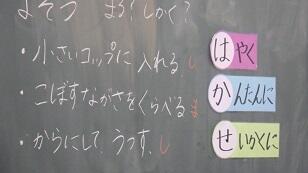 よそう　まる？しかく？
・小さいコップに入れる し
・こぼすながさをくらべる ま
・からにして、うつす。 し
はやく
かんたんに
せいかくに